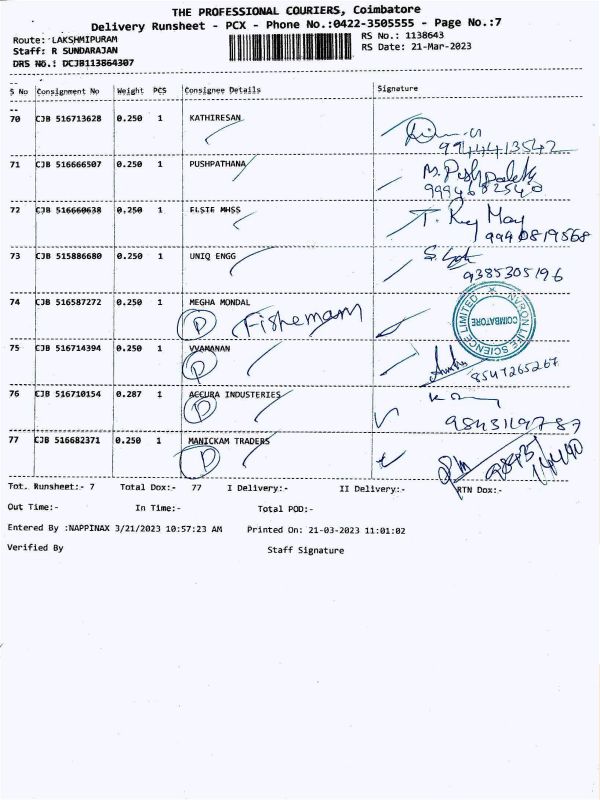 THE PROFESSIONAL COURIERS, Coimbatore
Delivery Runsheet - PCX - Phone No.:0422-3505555 - Page No.:7
Route: LAKSHMIPURAM
RS No.: 1138643
Staff: R SUNDARAJAN
RS Date: 21-Mar-2023
DRS NO.: DCJB113864307
S No Consignment No Weight PCS Consignee Details Signature
70 CJB 516713628 0.250 1 KATHIRESAN
9944413542
71 CJB 516666507 0.250 1 PUSHPATHANA
9994682540
72 CJB 516660638 0.250 1 ELSIE MHSS
9990819568
73 CJB 515886680 0.250 1 UNIQ ENGG
9385305196
74 CJB 516587272 0.250 1 MEGHA MONDAL
P Fishemam
NVRON LIFE SCIENCE LIMITED
COIMBATORE
75 CJB 516714394 0.250 1 VVAMANAN
P
8547265267
76 CJB 516710154 0.287 1 ACCURA INDUSTERIES
P
9843119787
77 CJB 516682371 0.250 1 MANICKAM TRADERS
P
Tot. Runsheet:- 7 Total Dox:- 77 I Delivery:- II Delivery:- RTN Dox:-
Out Time:- In Time:- Total POD:-
Entered By :NAPPINAX 3/21/2023 10:57:23 AM Printed On: 21-03-2023 11:01:02
Verified By Staff Signature